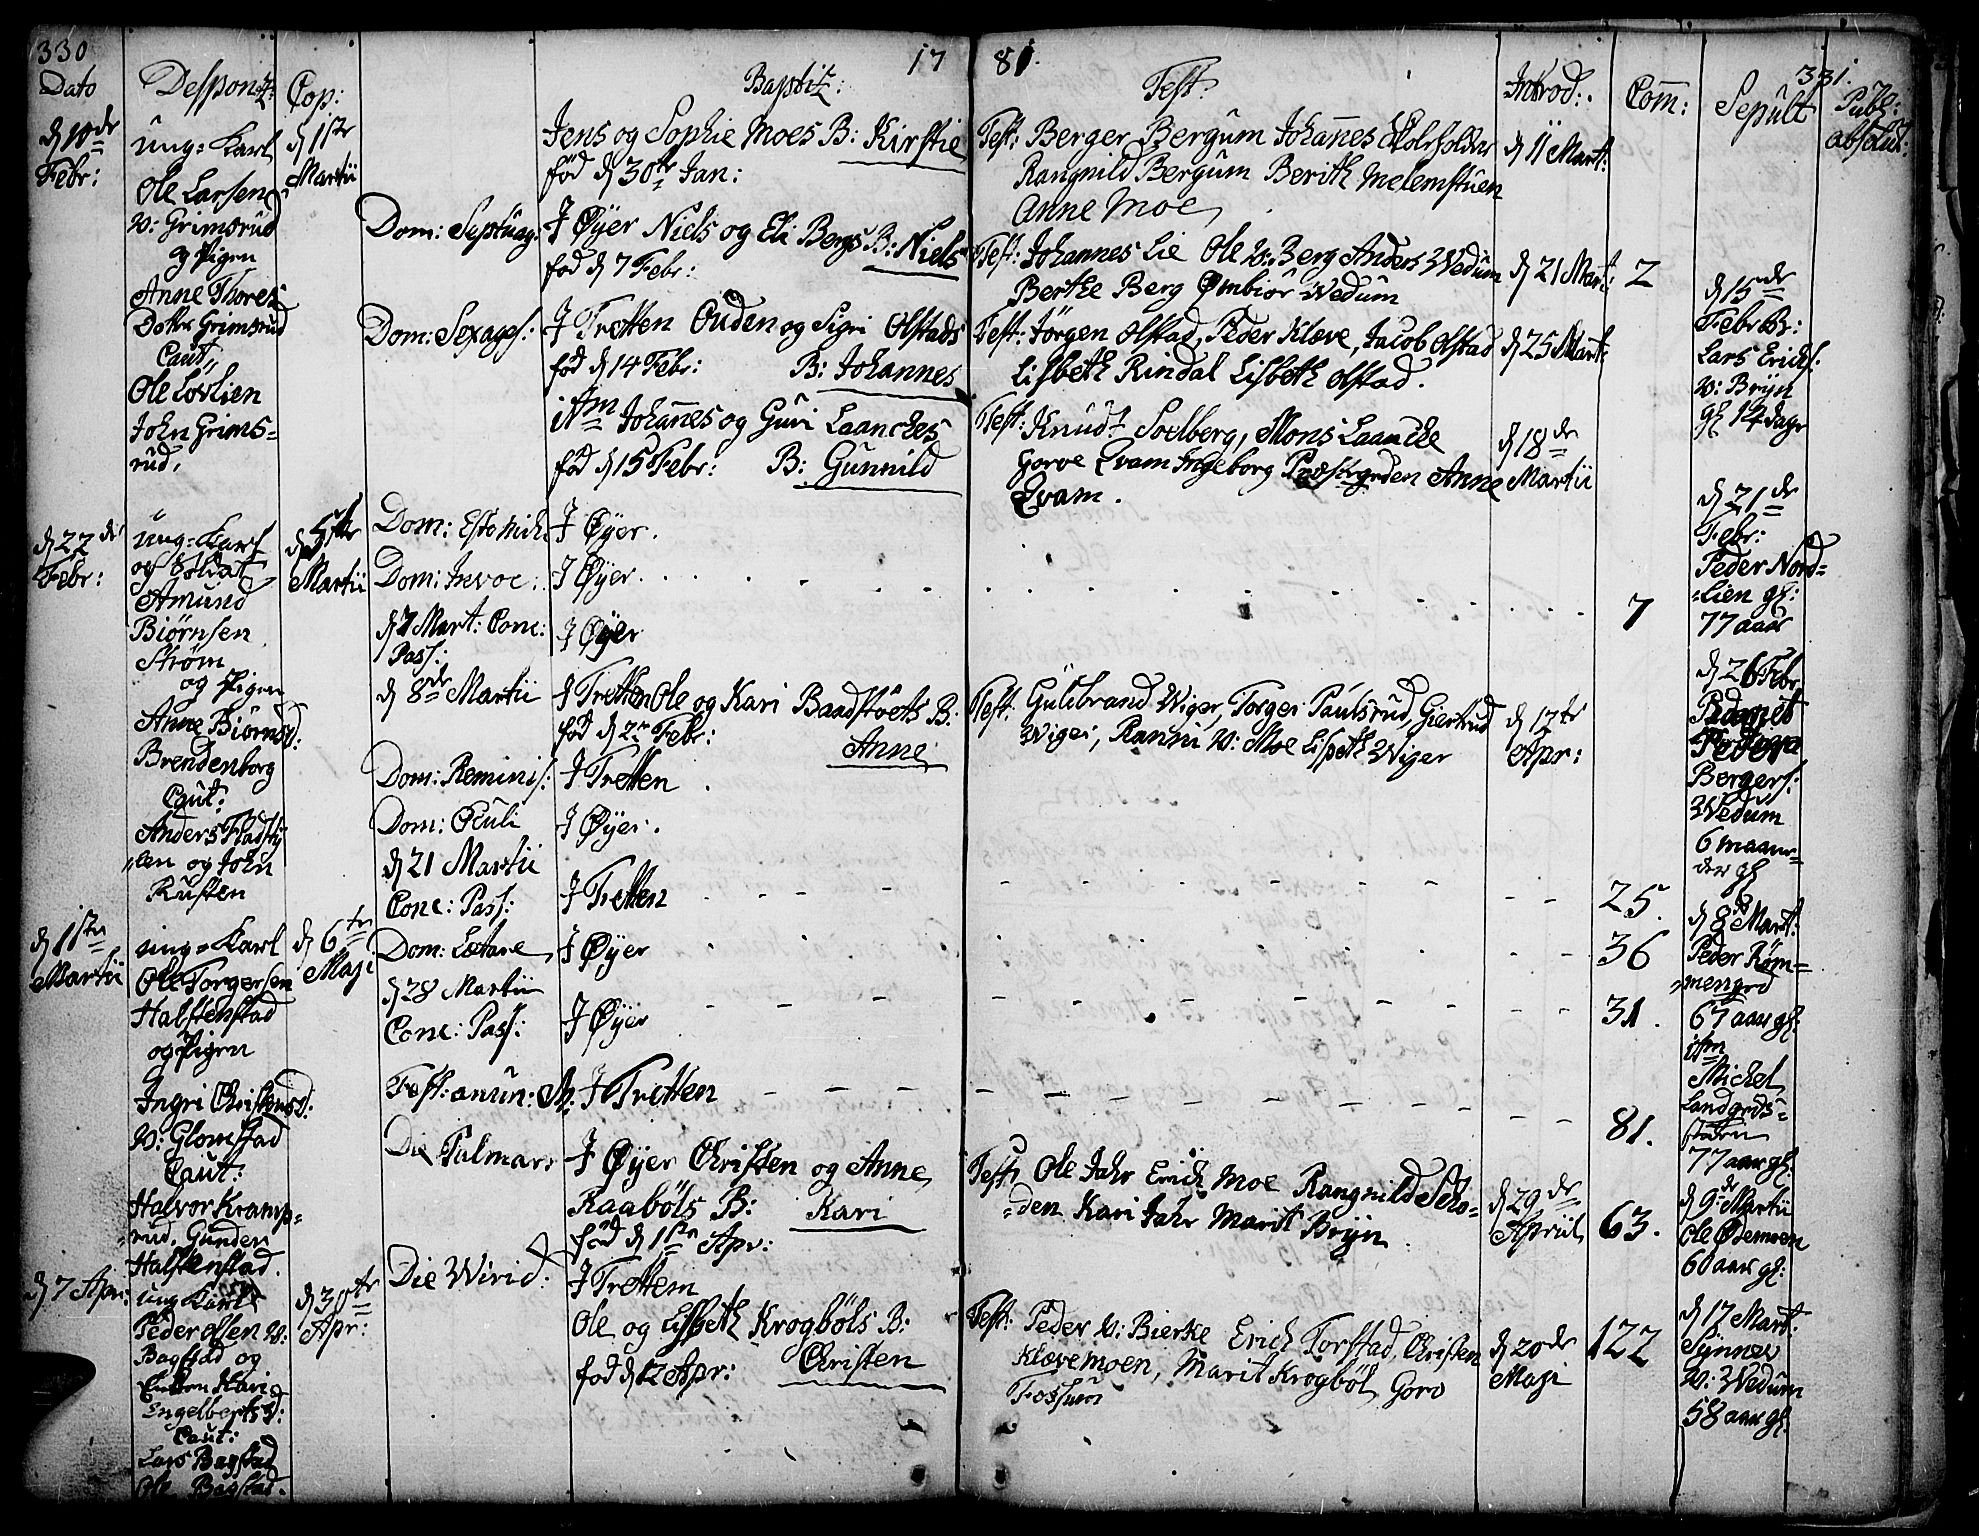 330
17
81.
331.
Dato
Desponz:
Cop:
Baptiz:
Test:
Introd:
Com̄:
Sepult
Publ:
absolut:
d 10de
Febr:
ung-Karl
Ole Larsen
v: Grimsrud
og Pigen
Anne Thores
Dotter Grimsrud
Caut,,
Ole Lovlien
John Grims=
rud,
d 1ste
Martii
d 22de
Febr:
ung-Karl
og Soldat
Amund
Biørnsen
Strøm
og Pigen
Anne Biørnsd:
Brendenborg
Caut:
Anders Fladsty
=len og John
Rusten
d 5te
Martii
d 11te
Martii
ung-Karl
Ole Torgersen
Halstenstad
og Pigen
Ingri Christensd:
v: Glomstad
Caut:
Halvor Kramp=
=rud, Gunder
Halstenstad.
d 6te
Maji
d 7 Apr:
ung Karl
Peder Olsen v:
Bagstad og
Enken Kari
Engelbertsd:
Caut:
Lars Bagstad
Ole Bagstad.
d 30te
Apr:
Jens og Sophie Moes B: Kirstie
fød d 30te Jan:
Dom: Septuag: J Øyer Niels og Eli Bergs B: Niels
fød d 7 Febr:
Dom: Sexages: J Tretten Ouden og Sigri Olstads
fød d 14 Febr: B: Johannes
itm Johan̄es og Guri Laanckes
fød d 15 Febr: B: Gunnild
Dom: Estomih: J Øyer.
Dom: Invoc: J Øyer.
d 7 Mart: Conc:
Pass: J Øyer
d 8de Martii J Tretten Ole og Kari Baadstøets B:
fød d 2n Febr: Anne
Dom: Reminis: J Tretten
Dom: Oculi J Øyer.
d 21 Martii
Conc: Pass: J Tretten
Dom: Lætare J Øyer
d 28 Martii
Conc: Pass: J Øyer
Fest: anun: M: J Tretten
Die Palmar: J Øyer Christen og Anne
Raabøls B: Kari
fød d 1ste Apr:
Die Wirid: J Tretten
Ole og Lisbeth Krogbøls B:
fød d 12 Apr: Christen
Test: Berger Bergum Johan̄es Skoleholder
Rangnild Bergum Berith Melemstuen
Anne Moe
d 11 Mart:
Test: Johannes Lie Ole v: Berg Anders Wedum
Berthe Berg Ømbiør Wedum
d 21 Mart: 2
Test: Jørgen Olstad, Peder Klæve, Jacob Olstad
Lisbeth Rindal Lisbeth Olstad.
d 25 Mart:
Test: Knud Soelberg, Mons Laancke
Gorve Qvam Ingeborg Præstegrden Anne
Qvam.
d 18de
Martii
7
Test: Guldbrand Wiger, Torger Paulsrud, Giertrud
Wiger, Ranni v: Moe Lisbeth Wiger
d 12te
Apr:
25.
36
31.
81.
Test: Ole Jahr Erich Moe Rangnild Sko=
=den Kari Jahr Marit Bryn
d 29de
Apriil 63.
Test: Peder v: Bierke Erich Torstad, Christen
Klævemoen, Marit Krogbøl, Goro
Fossum
d 20de
Maji
122
d 15de
Febr Br:
Lars Erichs:
v: Bryn
gl 14 dage
d 21de
Febr:
Peder Nord=
=lien gl:
77 aar
d 26 Febr
Peder
Bergers:
Wedum
6 maane=
der gl
d 8de Mart:
Peder Røm=
=mengrd
67 aar gl:
itm
Michel
Landgrds=
støen
77 aar gl
d 9de Martii
Ole Ødemoen
60 aar gl:
d 17 Mart:
Synnev
v: Wedum
58 aar gl.